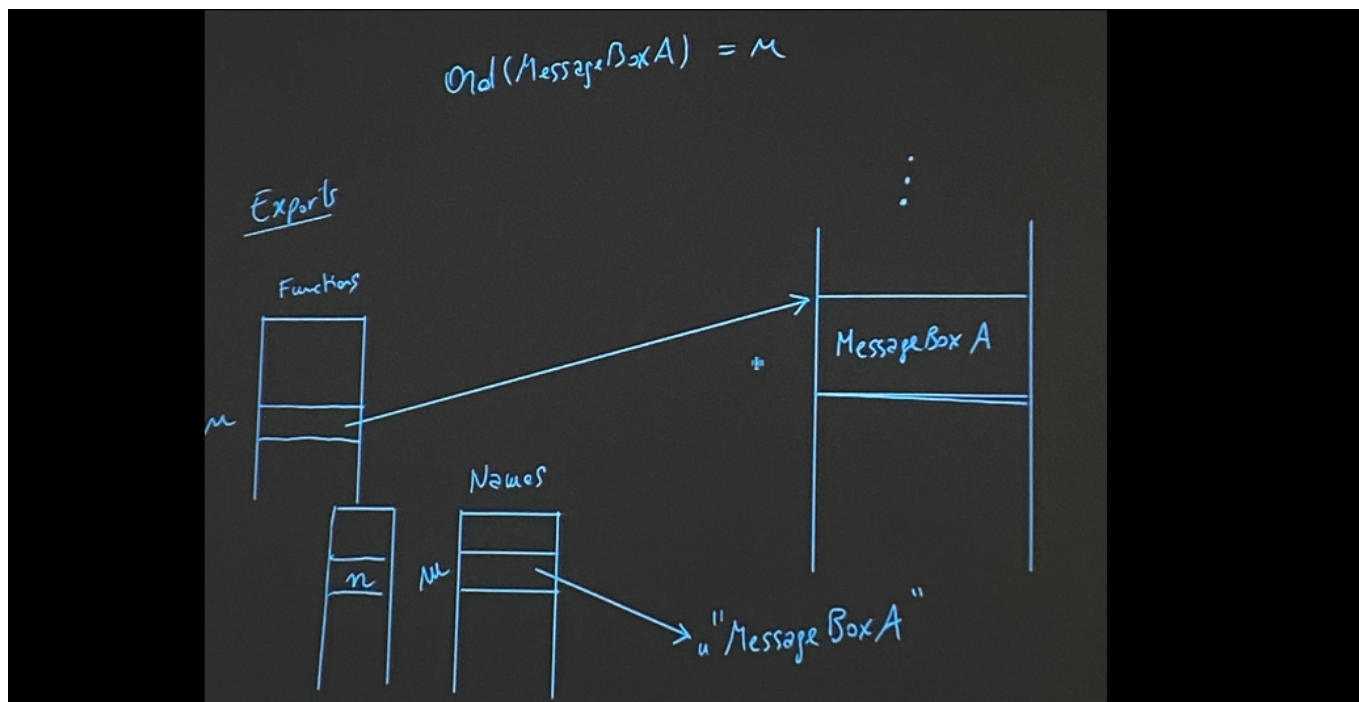 Ord(MessageBoxA) = n
Exports
Functions
MessageBox A
n
Names
n
m
"MessageBoxA"